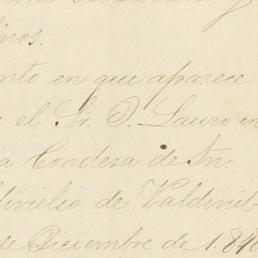 nto en que aparece
el Sr. D. Lauro
a Condesa de Sn.
divielso de Valdivi
de Diciembre de 1.8